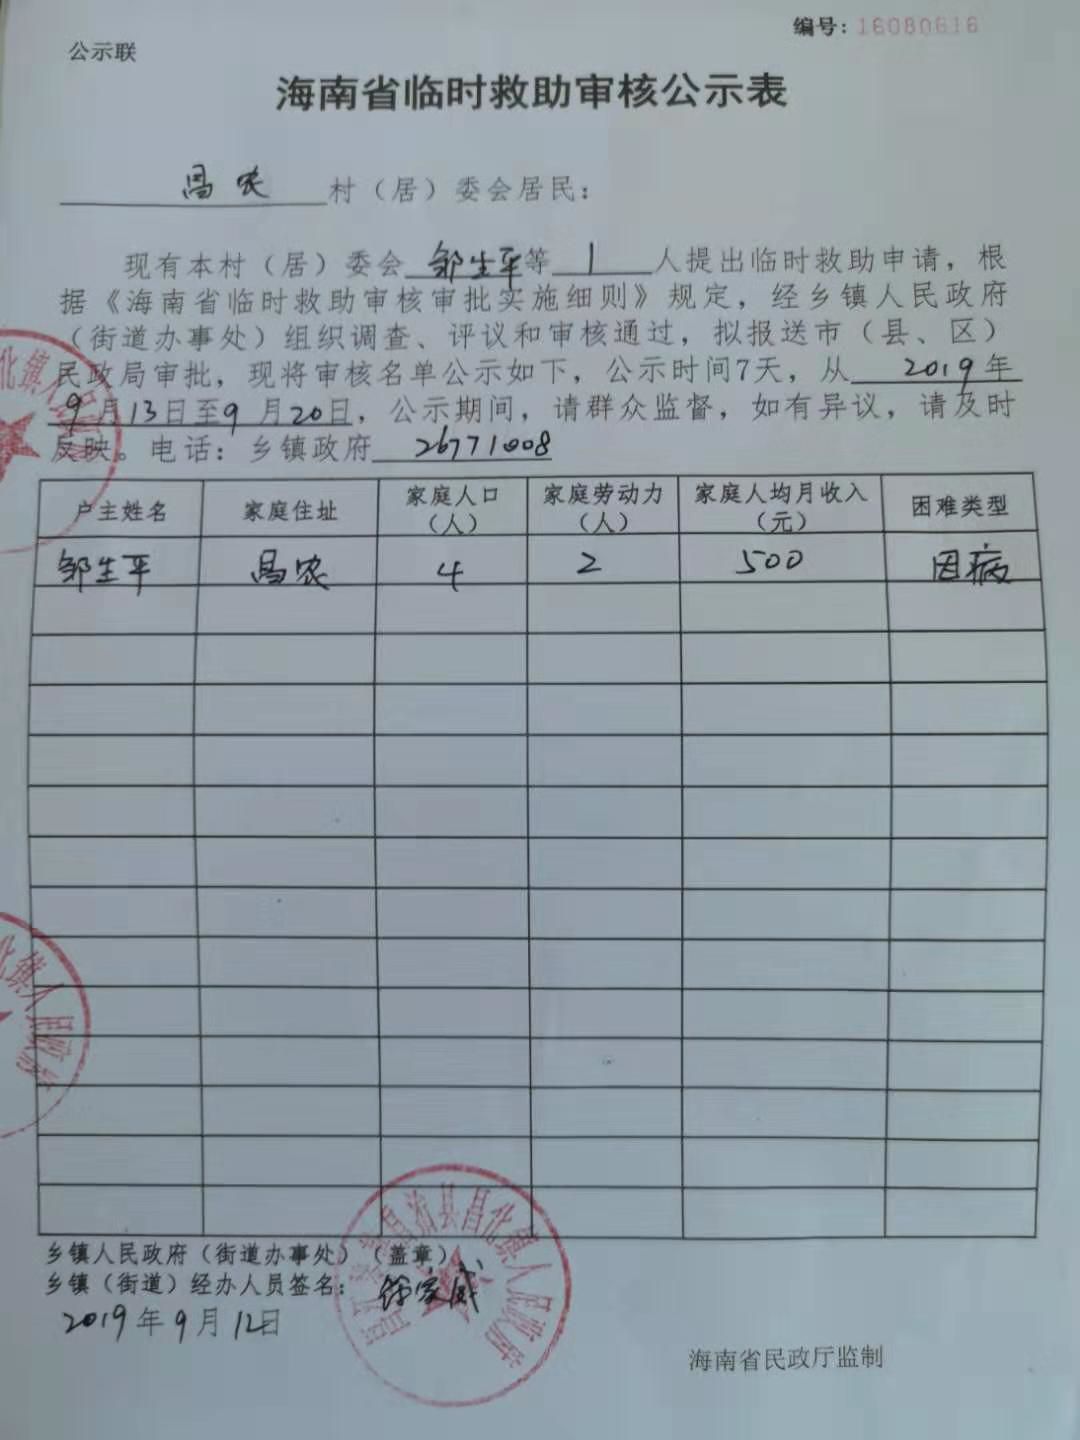 编号：16080616
公示联
海南省临时救助审核公示表
昌农 村（居）委会居民：
现有本村（居）委会 邹生平等 1 人提出临时救助申请，根
据《海南省临时救助审核审批实施细则》规定，经乡镇人民政府
（街道办事处）组织调查、评议和审核通过，拟报送市（县、区）
民政局审批，现将审核名单公示如下，公示时间7天，从 2019 年
9 月 13 日至 9 月 20 日，公示期间，请群众监督，如有异议，请及时
反映。电话：乡镇政府 26771008
户主姓名 家庭住址 家庭人口（人） 家庭劳动力（人） 家庭人均月收入（元） 困难类型
邹生平 昌农 4 2 500 因病
乡镇人民政府（街道办事处）（盖章）
乡镇（街道）经办人员签名：
2019 年 9 月 12 日
海南省民政厅监制